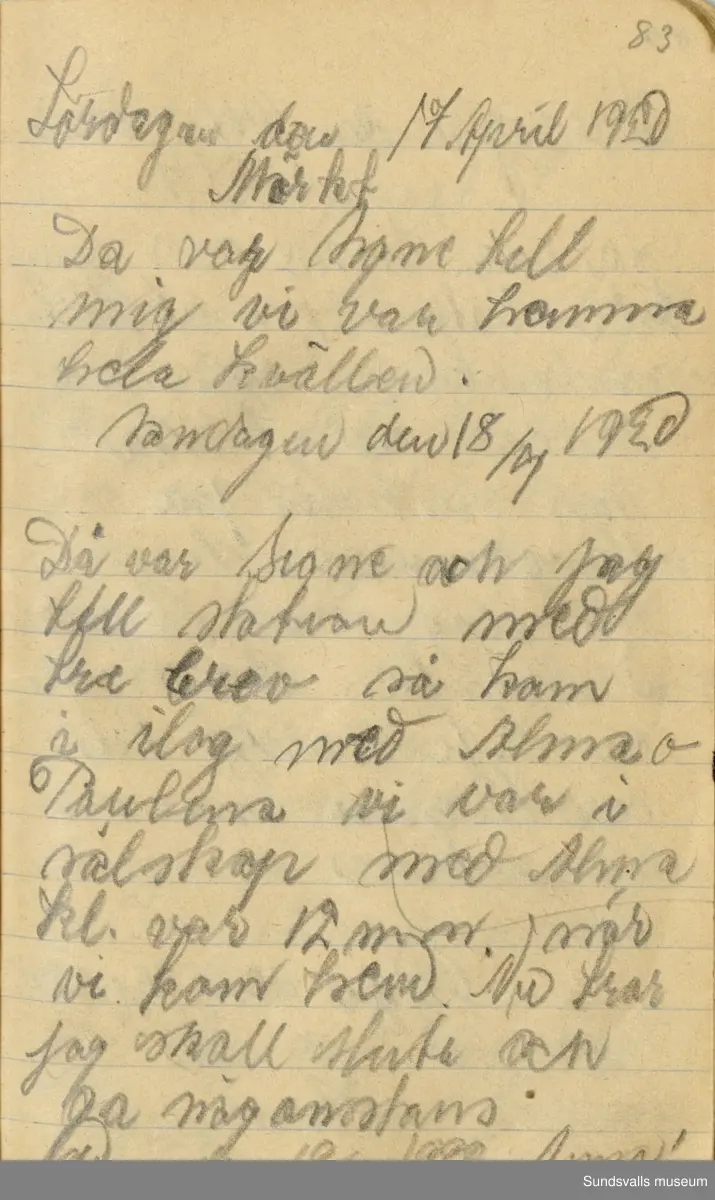 83
Lördagen den 17/4 April 1920
Mörkt
Da var Signe till
mig vi var hemma
hela kvällen.
Søndagen den 18/4 1920
Då var Signe och jag
till station med
tre brev så kom
i ilag med Alma o
Paulina vi var i
sälskap med Alma
kl. var 12 m.n. när
vi kom hem. Nu tror
jag skall sluta och
ga någonstans.
Sundsvalls museum